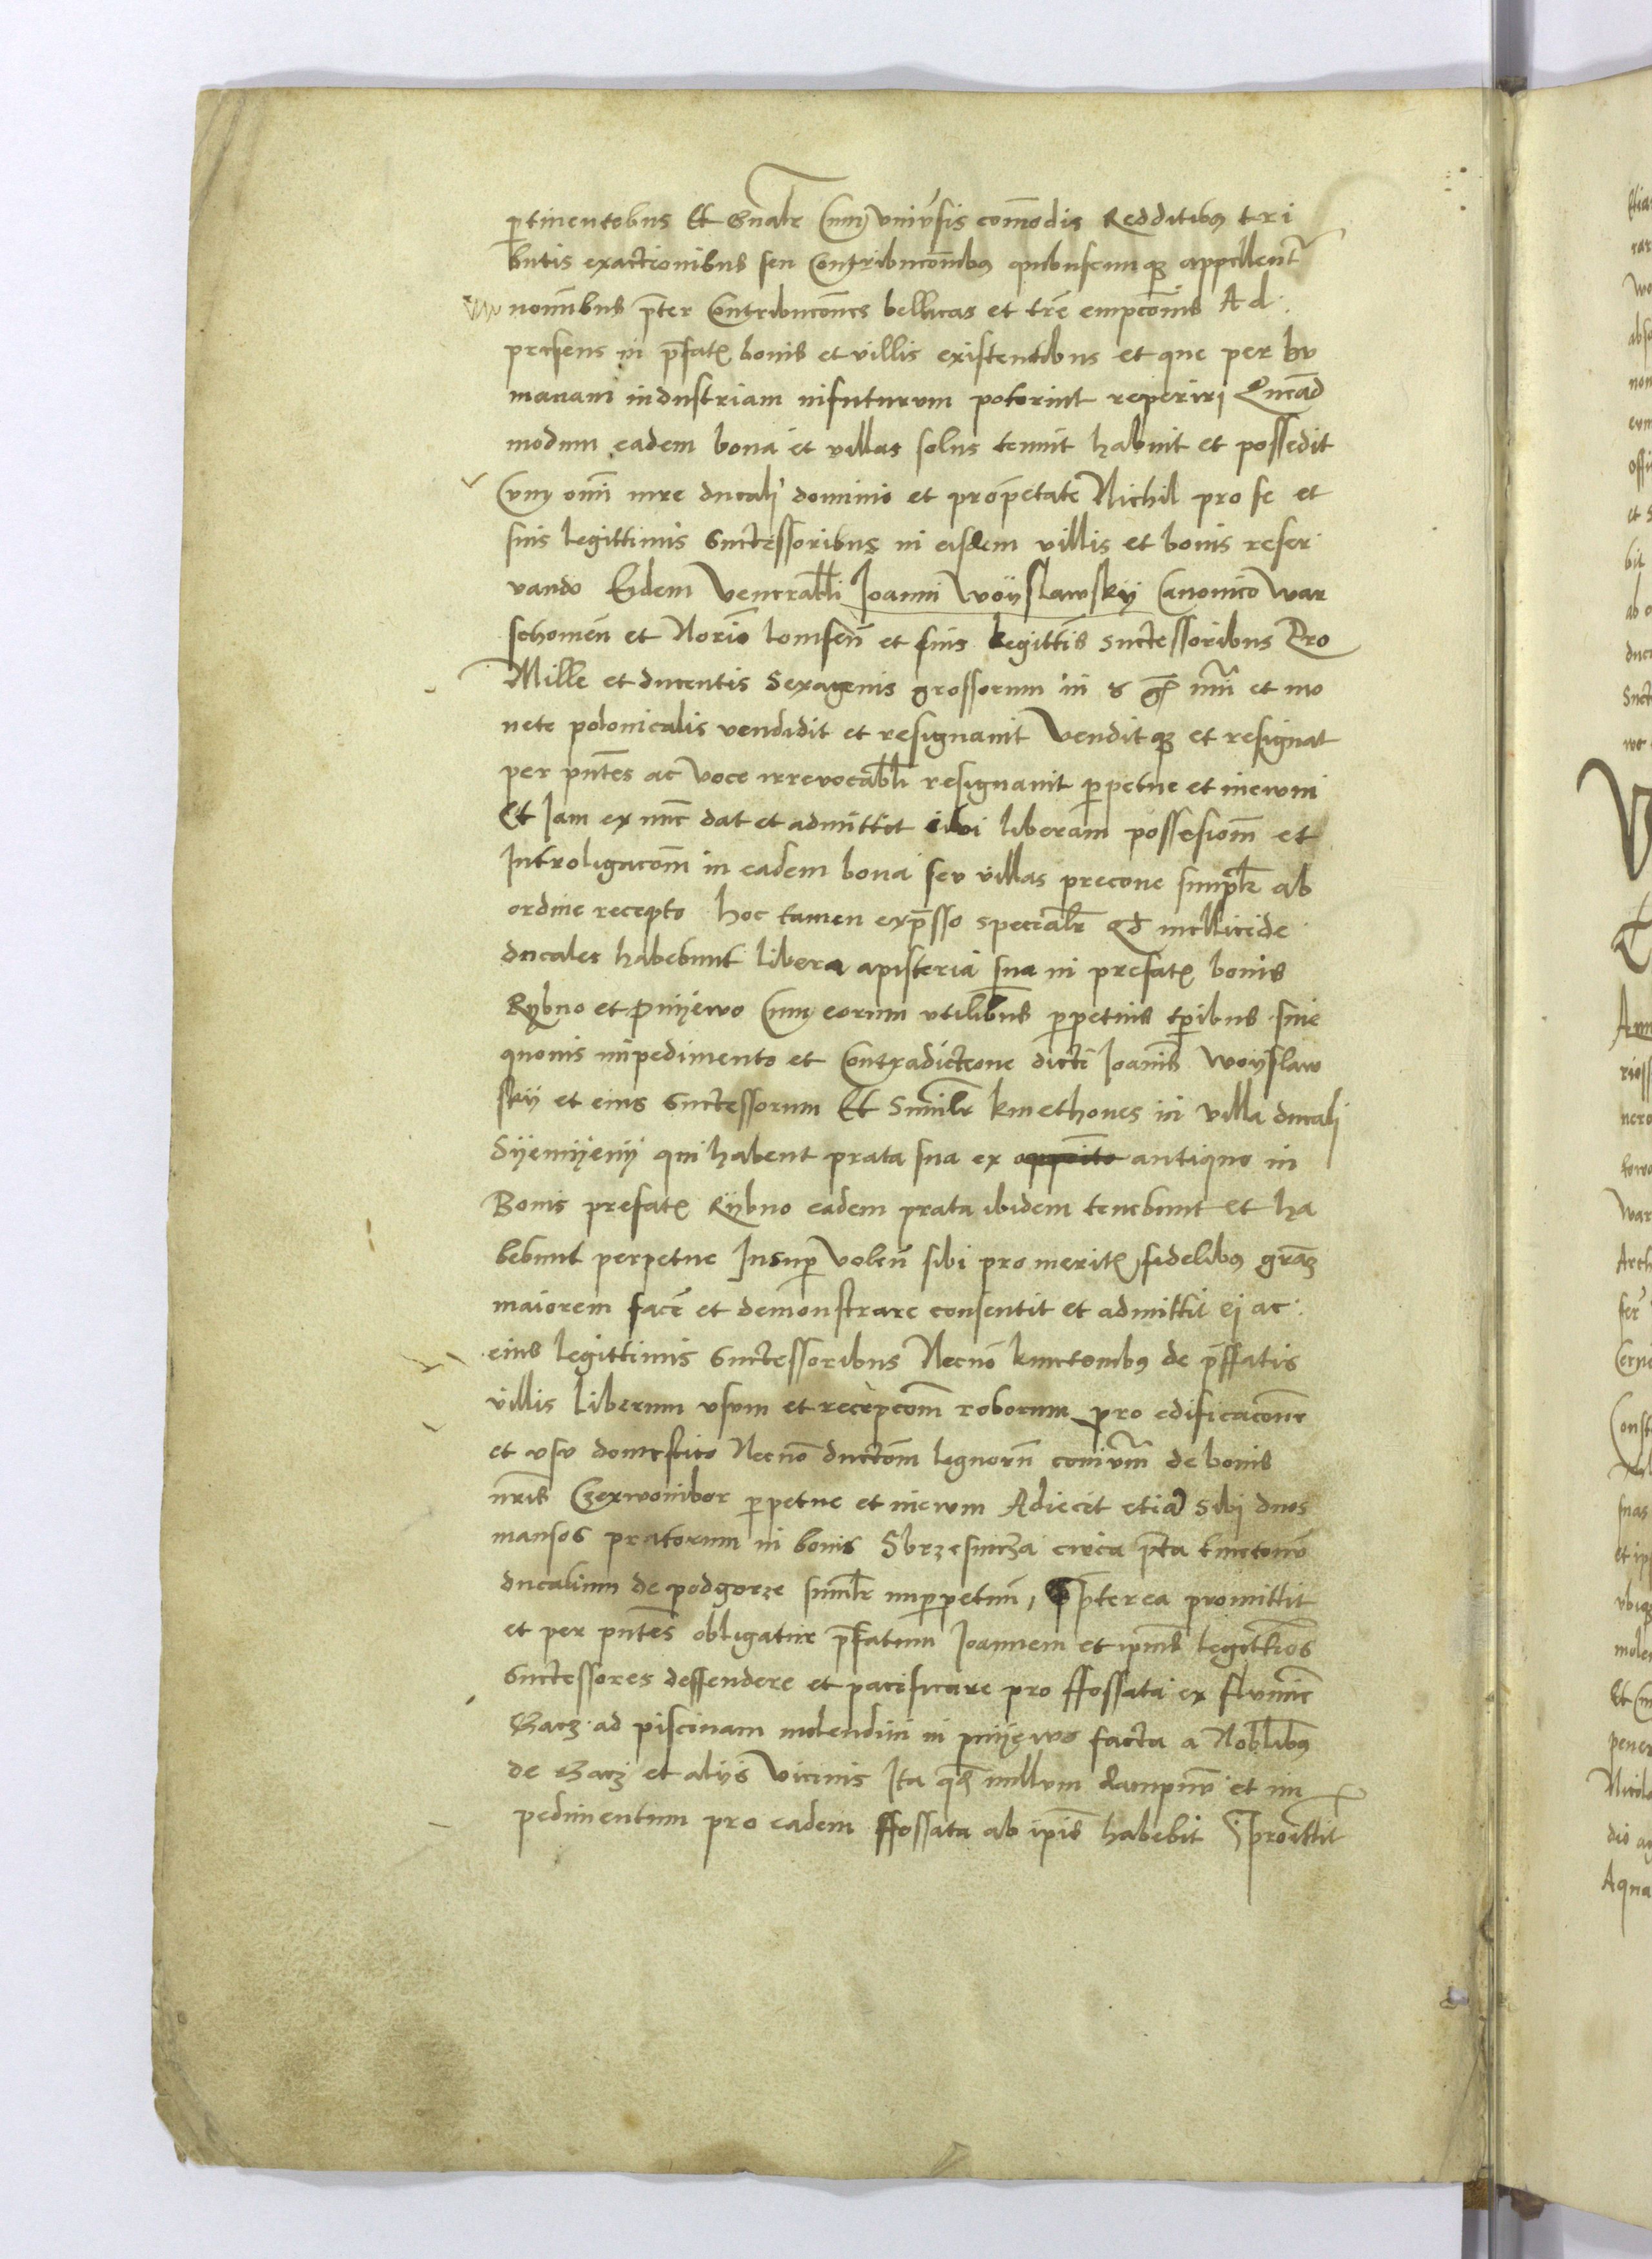 ptinentobus Et Gnalr Cum univsis comodis Redditibus tri
butis exactionibus seu Contribucombus quibuscumque appellent
nomibus pter Contribucones bellicas et tre empcoms Ad
presens in pfatis bonis et villis existentibus et que per hu
manam industriam infuturum poterint reperiri Quead
modum eadem bona et villas solus tenuit habuit et possedit
Cum omi iure ducali dominio et propetate Nichil pro se et
suis legittimis Successoribus in eisdem villis et bonis reser
vando Eidem Venerabli Joanni Woyslawsky Canonico War
schovien et Norio lomsen et suis legittis Successoribus Pro
Mille et ducentis Sexagenis grossorum in numi et mo
nete polonicalis vendidit et resignavit Venditque et resignat
per pntes ac voce irrevocabli resignavit ppetue et inevum
Et Jam ex nunc dat et admittit sibi liberam possesiom et
Introligacom in eadem bona seu villas precone simplr ab
ordine recepto hoc tamen expsso specialr qd mellicide
ducales habebunt libera apisteria sua in prefatis bonis
Rybno et Pnijewo Cum eorum utilibus ppetuis tpibus sine
quovis impedimento et Contradictione dicti Joanis Woyslaw
sky et eius Successorum Et Similr kmethones in villa ducali
Syemyeny qui habent prata sua ex antiquo in
Bonis prefatis Rybno eadem prata ibidem tenebunt et ha
bebunt perpetue Insup Volen sibi pro meritis fidelibus graz
maiorem face et demonstrare consentit et admittit ei ac
eius legittimis Successoribus Necno kmetonibus de pffatis
villis Liberum usum et recepcom roborum pro edificacone
et usu domestico Necno ductom lignoru de bonis
nris Czerwonibor ppetue et inevum Adiecit etia Sibi duos
mansos pratorum in bonis Sbrzesnicza circa pta kmetonu
ducalium de podgorze similr imppetuu, Pterea promittit
et per pntes obligatur pfatum Joannem et ipius legittios
Successores deffendere et pacificare pro ffossata ex flumine
Gacz ad piscinam molendini in pnijewo facta a Noblibus
de Gacz et aliis Vicinis Ita quod nullum dampnu et im
pedimentum pro eadem ffossata ab ipis habebit Et proittit